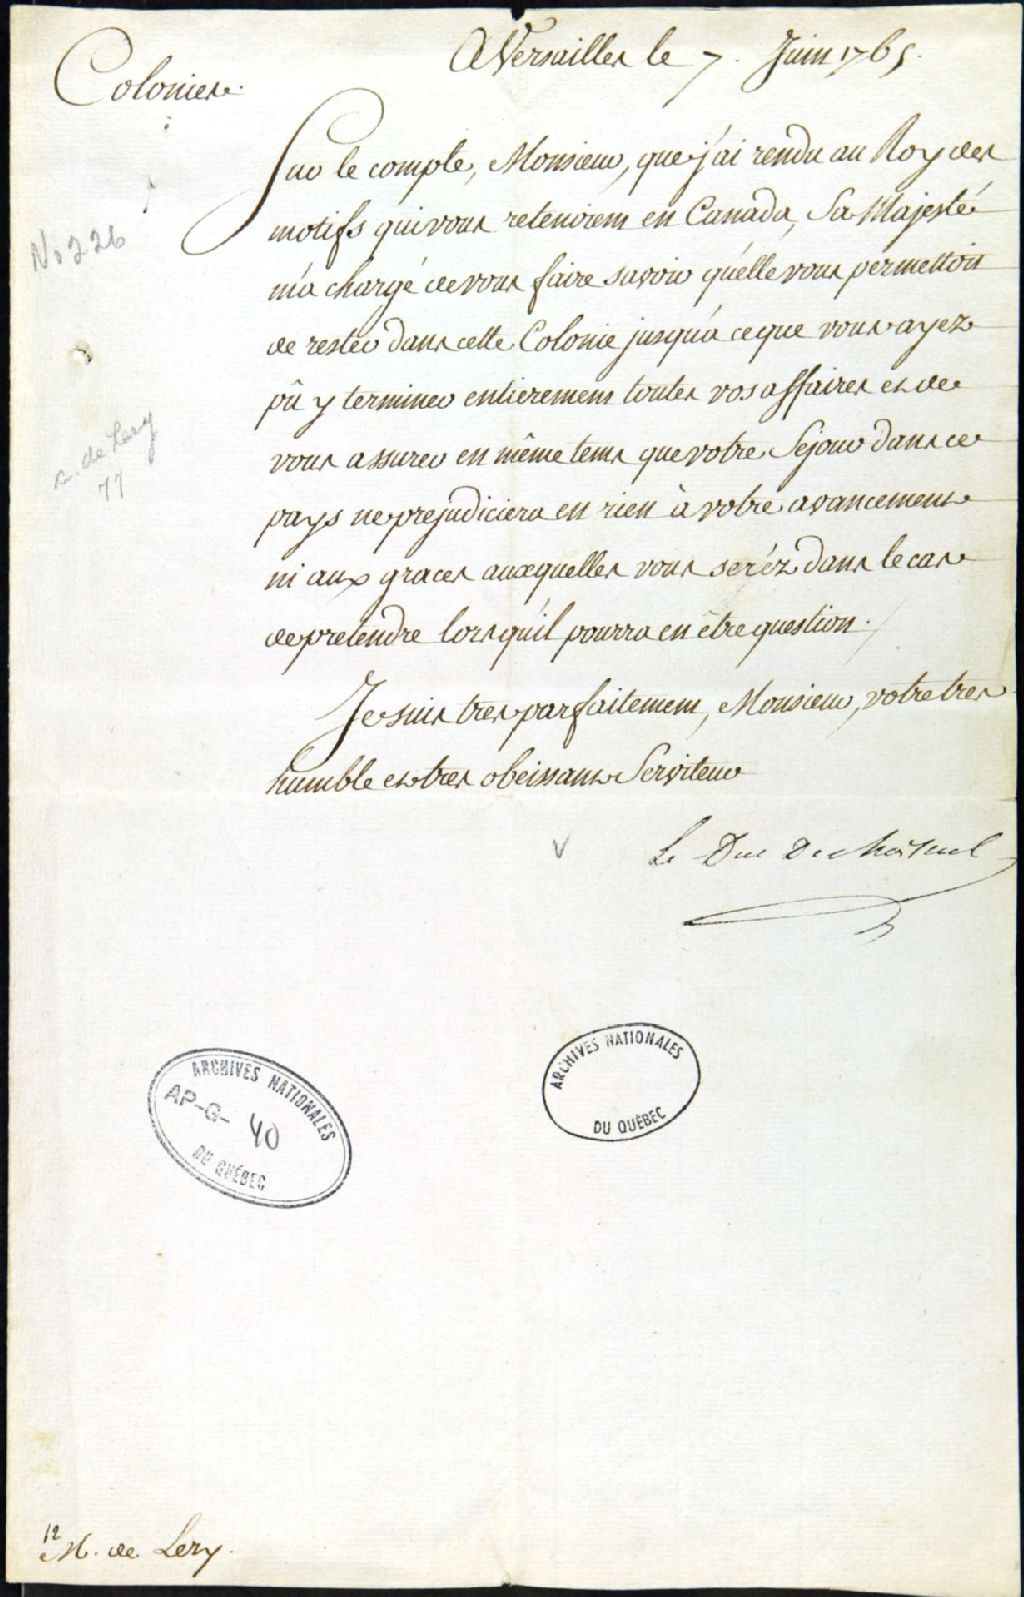 Colonies.
A Versailles le 7. Juin 1765.
Sur le compte, Monsieur, que j'ai rendu au Roy des
motifs qui vous retenoient en Canada, Sa Majesté
m'a chargé de vous faire savoir qu'elle vous permettoit
de rester dans cette Colonie jusqu'à ce que vous ayez
pû y terminer entierement toutes vos affaires et de
vous assurer en même tems que votre Sejour dans ce
pays ne prejudiciera en rien à votre avancement
ni aux graces auxquelles vous seréz dans le cas
de pretendre lorsqu'il pourra en être question.
Je suis tres parfaitement, Monsieur, votre tres
humble et tres obeissant Serviteur
Le Duc De Choiseul
No 226
C. de Lery
77
ARCHIVES NATIONALES
AP-G-40
DU QUÉBEC
ARCHIVES NATIONALES
DU QUÉBEC
12
M. de Lery.